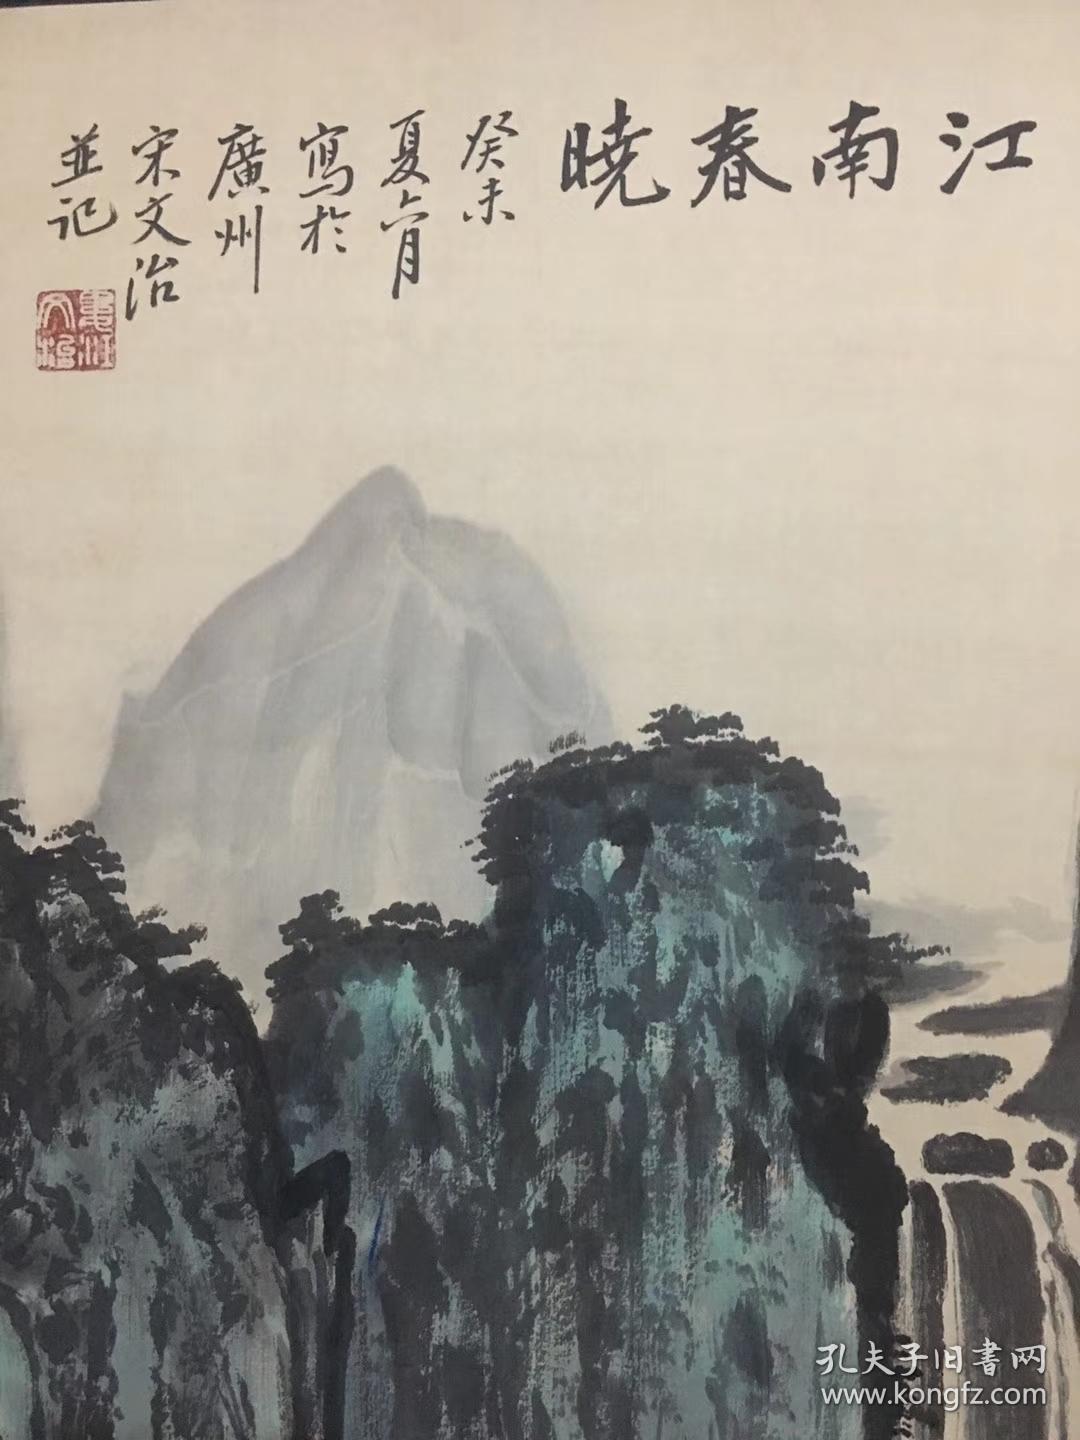 江南春曉
癸未
夏六月
寫於
廣州
宋文治
並记
孔夫子旧書网
www.kongfz.com